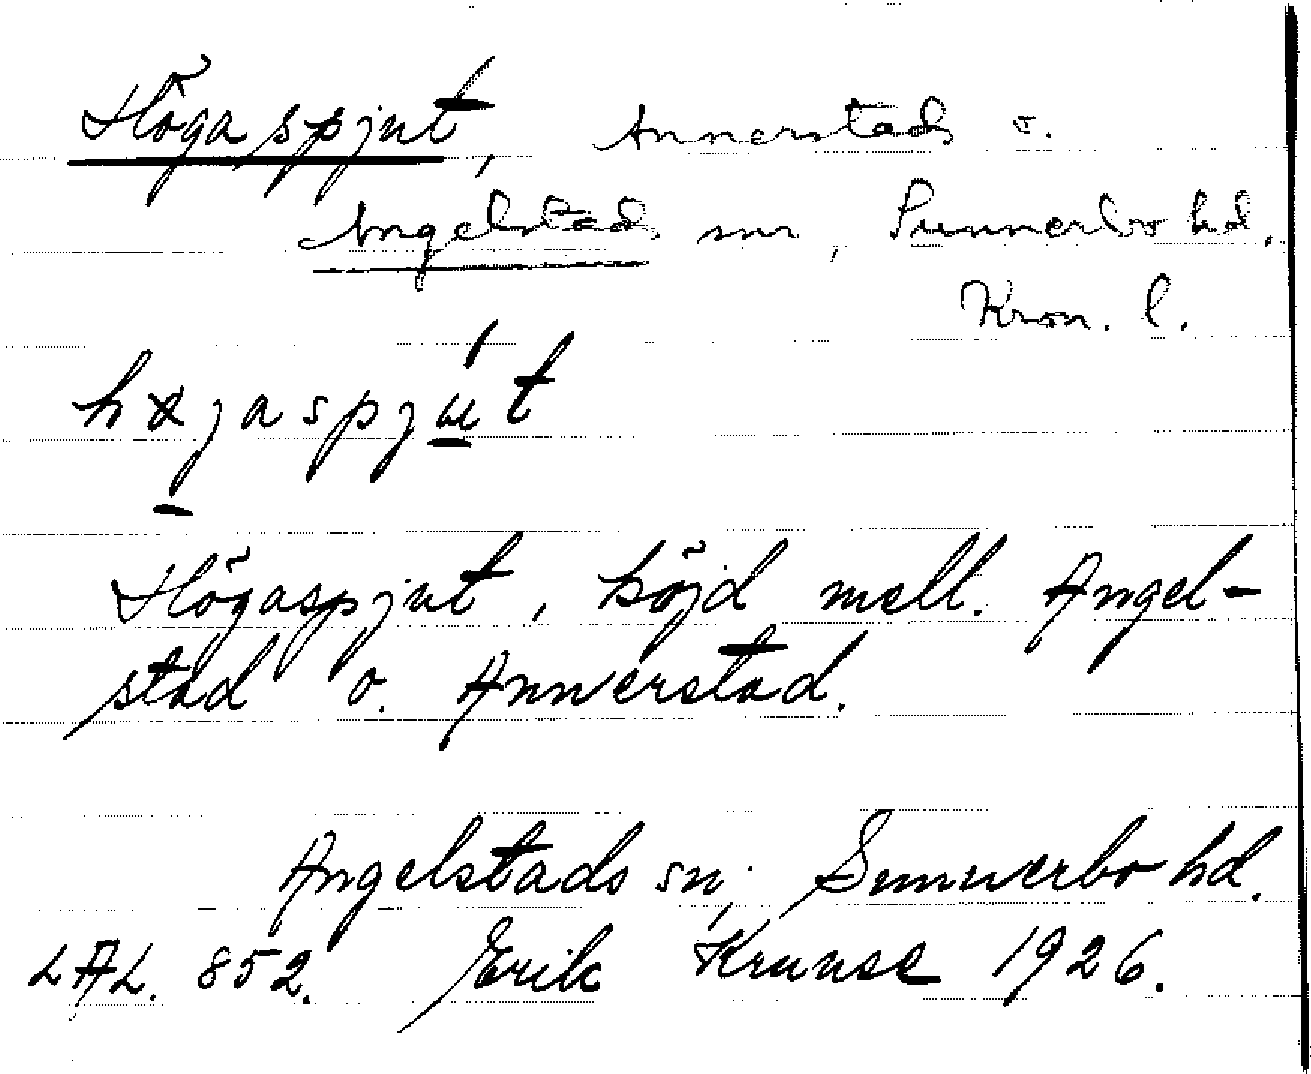 Högaspjut, Annerstads o.
Angelstads snr, Sunnerbo hd.
Kron. l.
Högaspjut, höjd mell. Angel-
stad o. Annerstad.
Angelstads sn, Sunnerbo hd.
LAL. 852. Erik Krunse 1926.